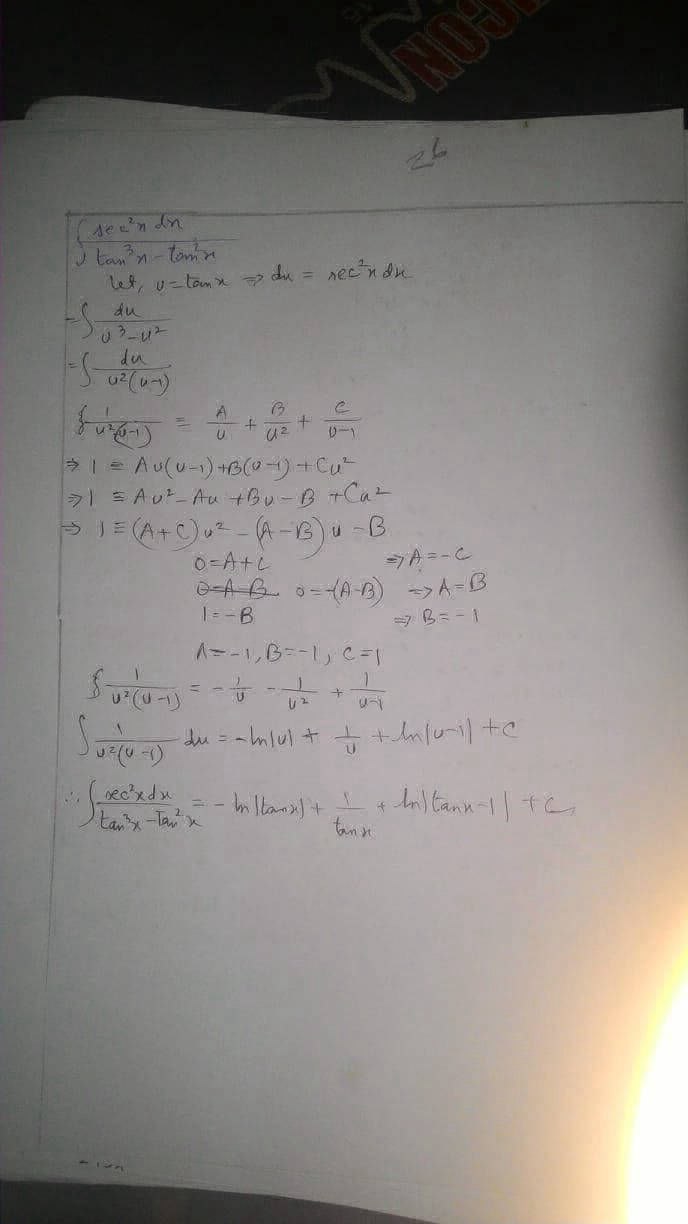 ICON
26
∫ sec²x dx / tan³x - tan²x
let, u = tanx ⇒ du = sec²x dx
= ∫ du / u³ - u²
= ∫ du / u²(u-1)
∫ 1 / u²(u-1) ≡ A/u + B/u² + C/u-1
⇒ 1 ≡ Au(u-1) + B(u-1) + Cu²
⇒ 1 ≡ Au² - Au + Bu - B + Cu²
⇒ 1 ≡ (A+C)u² - (A-B)u - B
0 = A + C ⇒ A = -C
0 = A - B 0 = -(A-B) ⇒ A = B
1 = -B ⇒ B = -1
A = -1, B = -1, C = 1
∫ 1 / u²(u-1) = - 1/u - 1/u² + 1/u-1
∫ 1 / u²(u-1) du = -ln|u| + 1/u + ln|u-1| + C
∴ ∫ sec²x dx / tan³x - tan²x = - ln|tanx| + 1/tanx + ln|tanx-1| + C